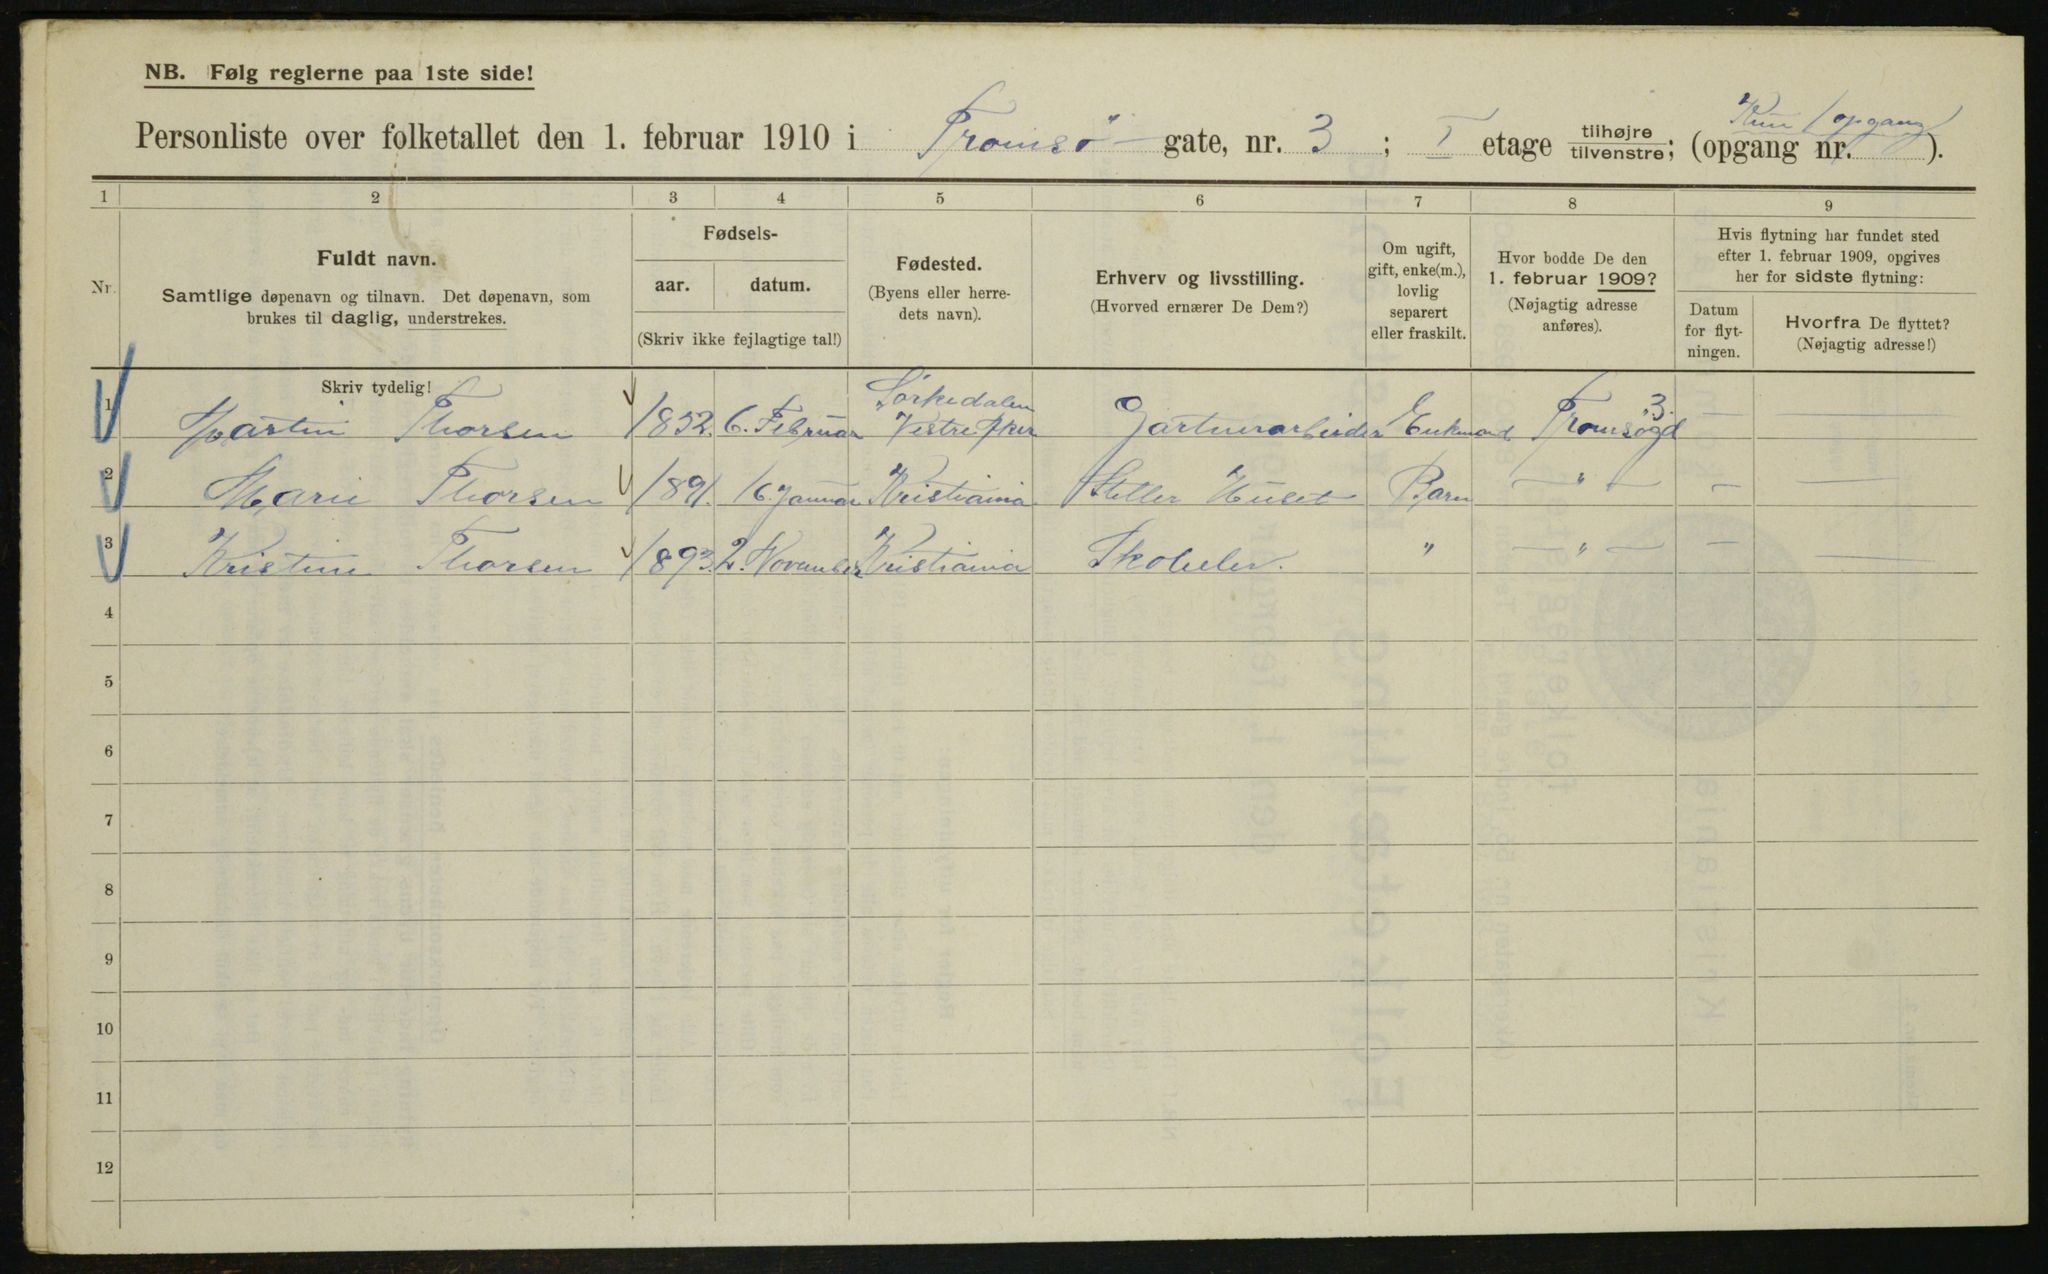 NB. Følg reglerne paa 1ste side!
Kun 1 opgang
Personliste over folketallet den 1. februar 1910 i Tromsø gate, nr. 3 ; I etage tilhøjre/tilvenstre; (opgang nr. ).
1 2 3 4 5 6 7 8 9
Nr.
Fuldt navn.
Samtlige døpenavn og tilnavn. Det døpenavn, som
brukes til daglig, understrekes.
Skriv tydelig!
Fødsels-
aar. datum.
(Skriv ikke fejlagtige tal!)
Fødested.
(Byens eller herre-
dets navn).
Erhverv og livsstilling.
(Hvorved ernærer De Dem?)
Om ugift,
gift, enke(m.),
lovlig
separert
eller fraskilt.
Hvor bodde De den
1. februar 1909?
(Nøjagtig adresse
anføres).
Hvis flytning har fundet sted
efter 1. februar 1909, opgives
her for sidste flytning:
Datum
for flyt-
ningen.
Hvorfra De flyttet?
(Nøjagtig adresse!)
1 Martin Thorsen 1852. 6. Februar Sørkedalen Vestre Aker Gartnerarbeider Enkmand Tromsøgd 3.
2 Marie Thorsen 1891. 16. Januar Kristiania Steller Huset Barn — " — — —
3 Kristine Thorsen 1893. 2. November Kristiania Skoleelev. " — " — — —
4
5
6
7
8
9
10
11
12